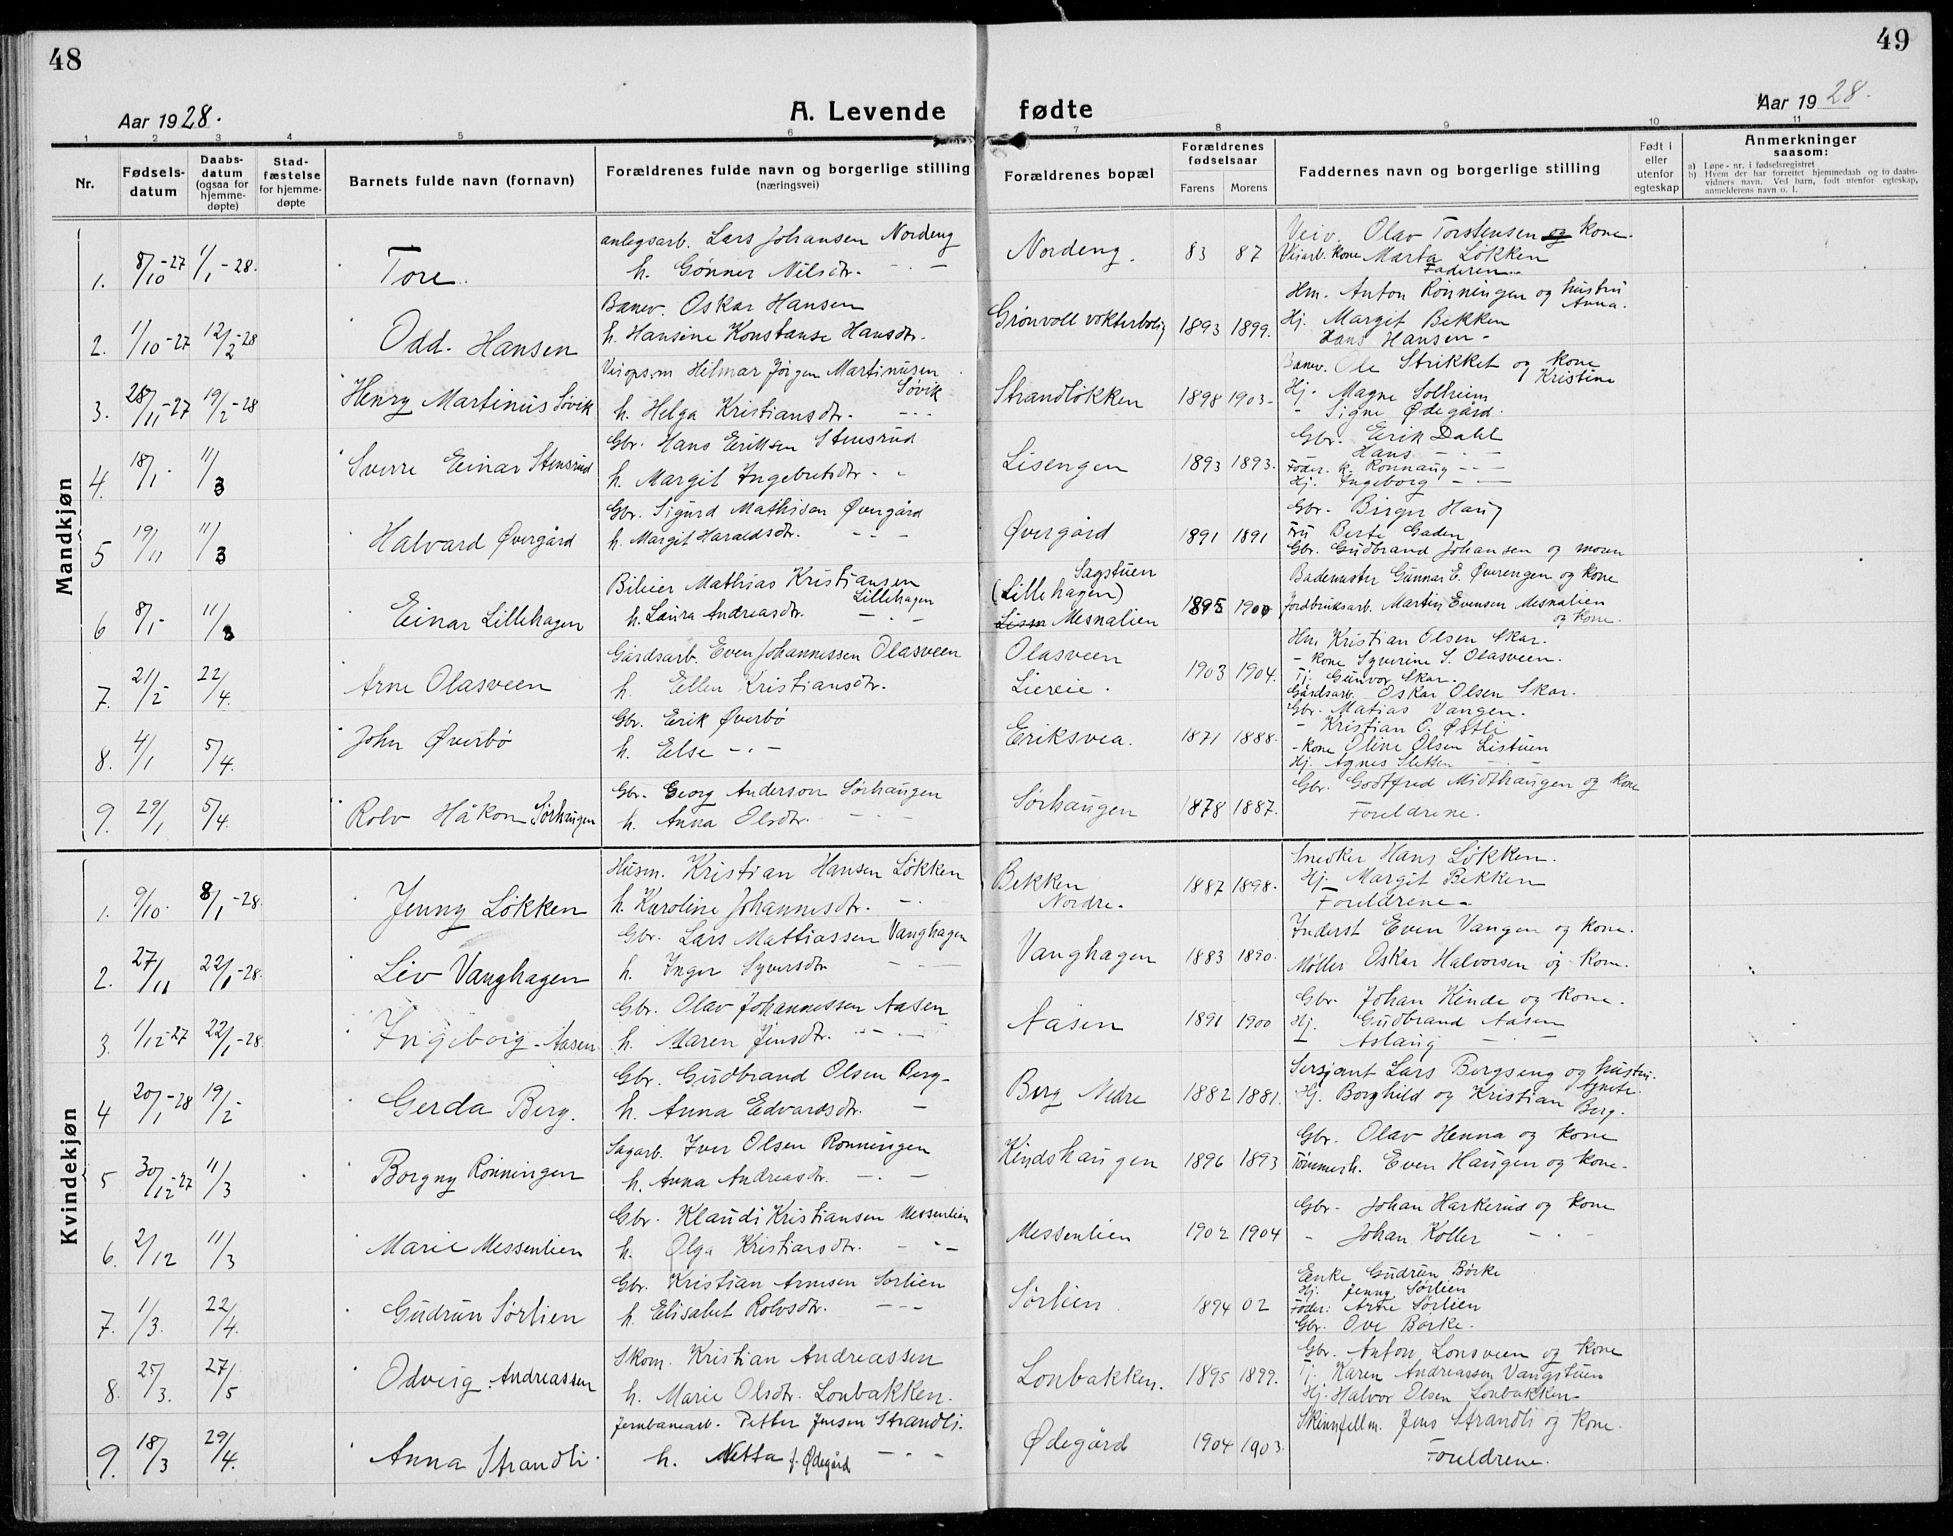 48
49
Aar 1928.
A. Levende fødte
Aar 1928.
1 2 3 4 5 6 7 8 9 10 11
Nr.
Fødsels-datum
Daabs-datum (ogsaa for hjemme-døpte)
Stad-fæstelse for hjemme-døpte
Barnets fulde navn (fornavn)
Forældrenes fulde navn og borgerlige stilling (næringsvei)
Forældrenes bopæl
Forældrenes fødselsaar
Farens Morens
Faddernes navn og borgerlige stilling
Født i eller utenfor egteskap
Anmerkninger saasom:
a) Løpe-nr. i fødselsregistret
b) Hvem der har forrettet hjemmedaab og to daabs-vidners navn. Ved barn, født utenfor egteskap, anmelderens navn o. l.
Mandkjøn
1. 8/10-27 1/1-28. Tore.
anlegsarb. Lars Johansen Nordeng
h. Gønner Nilsdtr. - -
Nordeng. 83 87
Veiv. Olav Torstensen og kone.
Veiarb. kone Marta Løkken
Faderen.
2. 1/10-27 12/2-28 Odd. Hansen
Banev. Oskar Hansen
h. Hansine Konstanse Hansdtr.
Grönvoll vokterbolig 1893 1899.
Hm. Anton Rönningen og hustru Anna.
Hj. Margit Bekken
Hans Hansen -
3. 28/11-27 19/2-28 Henry Martinus Søvik
Veiops.m Hilmar Jörgen Martinusen Søvik
h. Helga Kristiansdtr. - - -
Strandlökken 1898 1903-
Banev. Ole Strikket og kone Kristine
Hj. Magne Solheim
- Signe Ødegård.
4. 18/1. 11/3 Sverre Einar Stensrud
Gbr. Hans Eriksen Stensrud
h. Margit Ingebretsdtr. - -
Lisengen 1893 1893.
Gbr. Erik Dahl
Hans - -
Føder. k. Rønnaug - -
Hj. Ingeborg - -
5 19/11 11/3 Halvard Øvergård
Gbr. Sigurd Mathisen Øvergård
h. Margit Haraldsdtr. - - -
Øvergård 1891 1891
Gbr. Birger Haug
Fru Berte Gaden
Gbr. Gudbrand Johansen og moren
6 8/1- 11/3 Einar Lillehagen
Bileier Mathias Kristiansen Lillehagen
h. Laura Andreasdtr. - - -
Sagstuen
(Lillehagen)
Mesnalien 1895 1900
Bademester Gunnar E. Øverengen og kone
Jordbruksarb. Martin Evensen Mesnalien og kone.
7. 21/2 22/4. Arne Olasveen
Gårdsarb. Even Johannessen Olasveen
h. Ellen Kristiansdtr.
Olasveen
Liereie. 1903 1904.
Hm. Kristian Olsen Skar.
- kone Syverine S. Olasveen.
Tj. Gunvor Skar.
Gårdsarb. Oskar Olsen Skar.
8. 4/1 5/4. John Øverbø
Gbr. Erik Øverbø
h. Else - -
Eriksvea. 1871 1888.
Gbr. Matias Vangen.
- Kristian O. Østli
- kone Oline Olsen Listuen
Hj. Agnes Sletten - -
9. 29/1 5/4. Rolv Håkon Sörhaugen
Gbr. Georg Anderson Sörhaugen
h. Anna Olsdtr. - -
Sörhaugen 1878 1887.
Gbr. Godtfred Midthaugen og kone
Foreldrene.
Kvindekjøn
1. 9/10. 8/1-28. Jenny Lökken
Husm. Kristian Hansen Løkken
h. Karoline Johannesdtr. -
Bekken
Nordre. 1887 1898.
Snedker Hans Løkken.
Hj. Margit Bekken
Foreldrene.
2. 27/11 22/1-28. Liv Vanghagen
Gbr. Lars Mattiassen Vanghagen
h. Inger Syversdtr - - -
Vanghagen 1883 1890.
Inderst Even Vangen og kone.
Møller Oskar Halvorsen og kone.
3. 1/12-27 22/1-28. Ingeborg Aasen
Gbr. Olav Johannessen Aasen
h. Maren Jensdtr. - -
Aasen 1891 1900
Gbr. Johan Kinde og kone.
Hj. Gudbrand Aasen
- Aslaug - -
4 20/1-28 19/2- Gerda Berg.
Gbr. Gudbrand Olsen Berg-
h. Anna Edvardsdtr. -
Berg Nedre 1882 1881.
Sersjant Lars Bergseng og hustru Agnete.
Hj. Borghild og Kristian Berg.
5 30/12-27 11/3 Borgny Rönningen
Sagarb. Iver Olsen Rönningen
h. Anna Andreasdtr. - -
Kindshaugen 1896 1893
Gbr. Olav Henna og kone
Tömmerh. Even Haugen og kone-
6. 2/12 11/3 Marie Messenlien
Gbr. Klaudi Kristiansen Messenlien
h. Olga Kristiansdtr. - - -
Messenlien 1902 1904
Gbr- Johan Harkerud og kone
- Johan Koller - - -
7. 1/3. 22/4. Gudrun Sörlien
Gbr. Kristian Arnesen Sörlien
h. Elisabet Rolvsdtr. - - -
Sörlien 1894 02
Enke Gudrun Börke
Hj. Jenny Sörlien
Føder. Arne Sörlien
Gbr. Ove Börke.
8. 25/3. 27/5 Odveig Andreassen
Skom. Kristian Andreassen
h. Marie Olsdtr. Lonbakken.
Lonbakken. 1895 1899.
Gbr. Anton Lonsveen og kone
Tj. Karen Andreassen Vangstuen
Hj. Halvor Olsen Lonbakken-
9. 18/3 29/4. Anna Strandli.
Jernbanearb. Petter Jensen Strandli.
h. Netta f. Ødegård - - -
Ødegård 1904 1903.
Skinnfellm. Jens Strandli og kone.
Foreldrene.